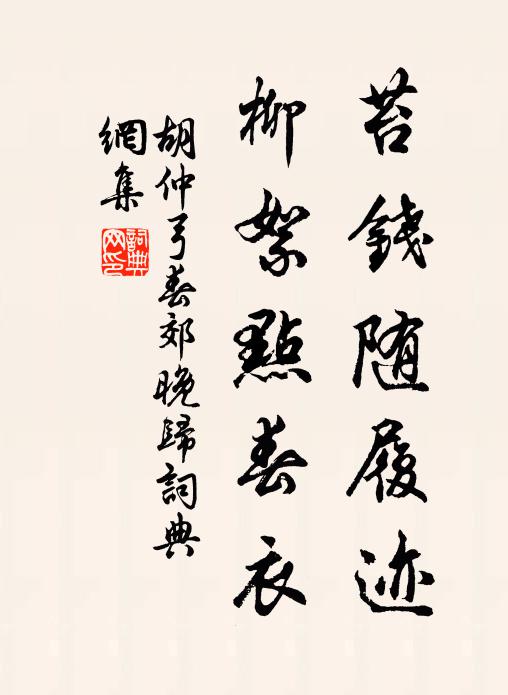 苔錢随履迹
柳絮點春衣
胡仲弓春郊晚歸詞典
網集
詞典
网印